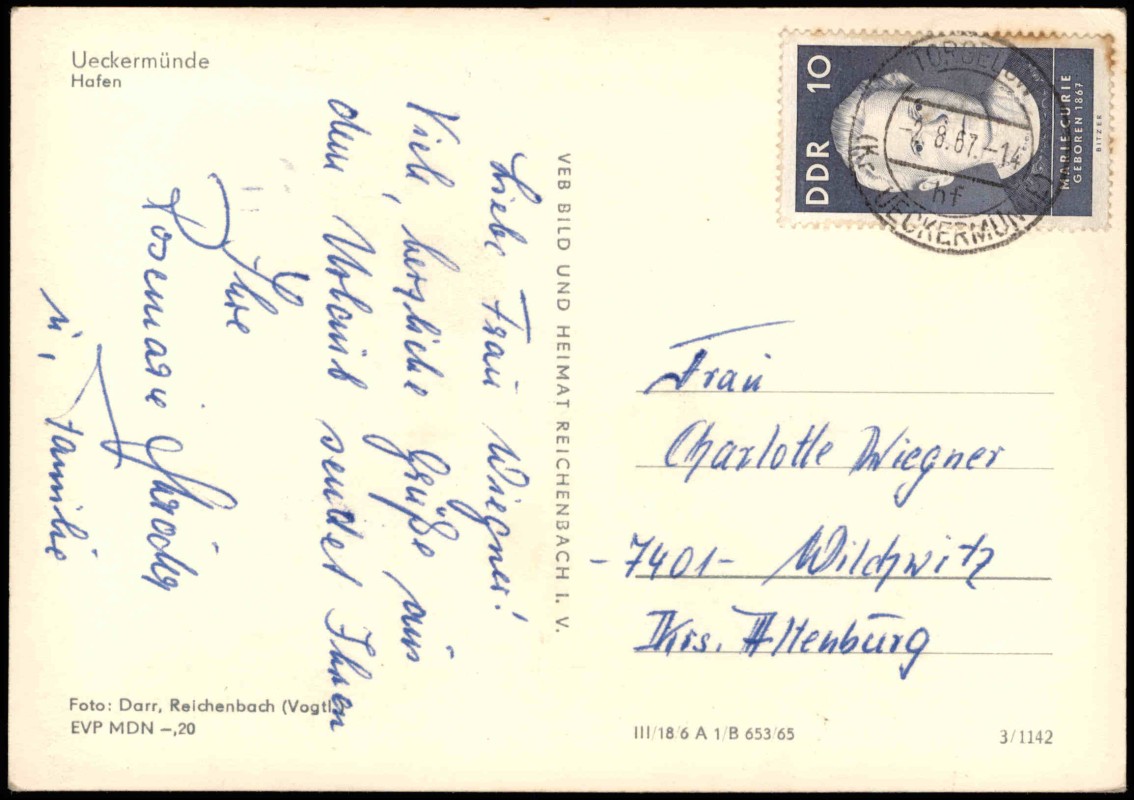 Ueckermünde
Hafen
Liebe Frau Wiegner!
Viele, herzliche Grüße aus
dem Urlaub sendet Ihnen
Ihre
Rosemarie
u. Familie
Foto: Darr, Reichenbach (Vogtl
EVP MDN –,20
VEB BILD UND HEIMAT REICHENBACH I. V.
DDR 10
MARIE CURIE
GEBOREN 1867
BITZER
TORGELOW
-2.8.67.-14
hf
(KR. UECKERMÜNDE)
Frau
Charlotte Wiegner
-7401- Wilchwitz
Krs. Altenburg
III/18/6 A 1/B 653/65
3/1142